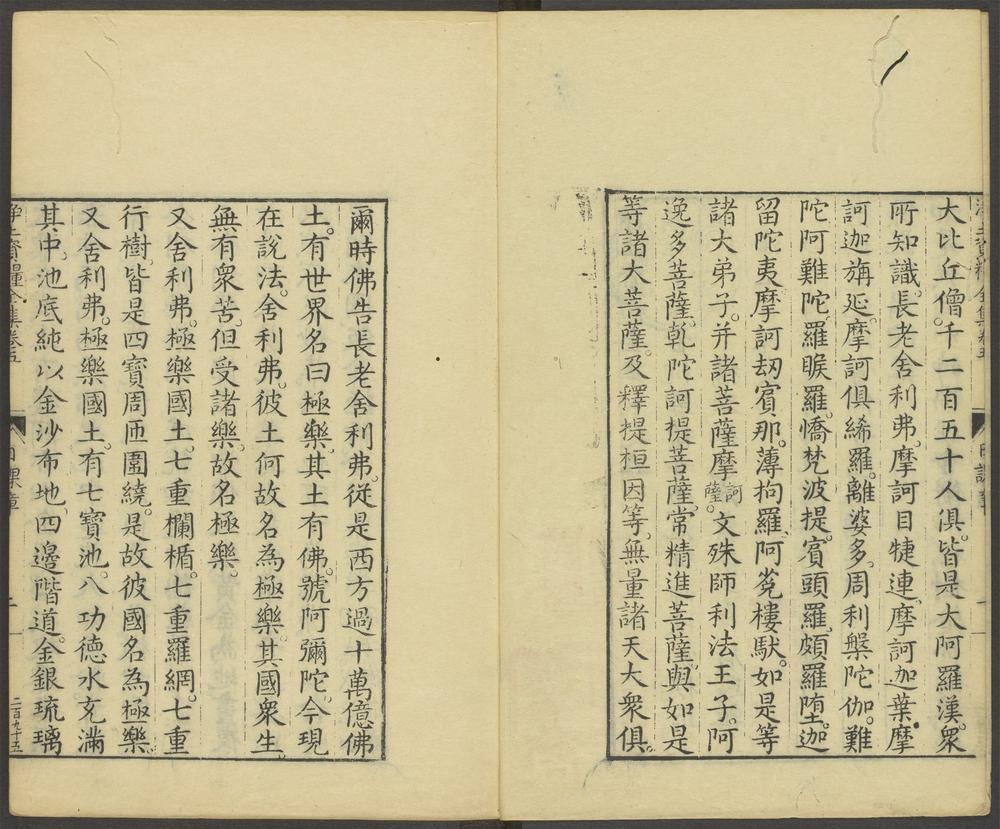 大比丘僧。千二百五十人俱。皆是大阿羅漢。衆
所知識。長老舍利弗。摩訶目犍連。摩訶迦葉。摩
訶迦旃延。摩訶俱絺羅。離婆多。周利槃陀伽。難
陀阿難陀。羅睺羅。憍梵波提。賓頭羅。頗羅墮。迦
留陀夷。摩訶劫賓那。薄拘羅。阿㝹樓馱。如是等
諸大弟子。并諸菩薩摩訶薩。文殊師利法王子。阿
逸多菩薩。乾陀訶提菩薩。常精進菩薩。與如是
等諸大菩薩。及釋提桓因等。無量諸天大衆俱。
爾時佛告長老舍利弗。從是西方過十萬億佛
土。有世界名曰極樂。其土有佛。號阿彌陀。今現
在說法。舍利弗。彼土何故名為極樂。其國衆生
無有衆苦。但受諸樂。故名極樂。
又舍利弗。極樂國土。七重欄楯。七重羅網。七重
行樹。皆是四寶周匝圍繞。是故彼國名為極樂。
又舍利弗。極樂國土。有七寶池。八功德水。充滿
其中。池底純以金沙布地。四邊階道。金銀琉璃
淨土資糧全集卷五 日課章 二百九十五